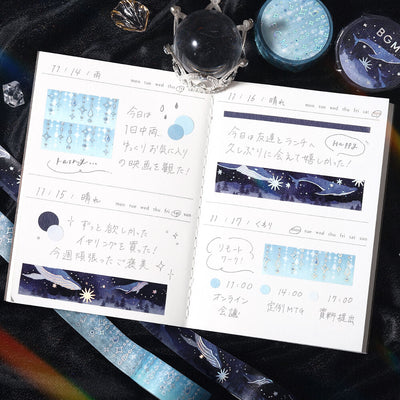 11 / 14 / 雨
mon tue wed thu fri sat sun
今日は
1日中雨…
ゆっくりお気に入り
の映画を観た!
11 / 15 / 晴れ
mon tue wed thu fri sat sun
ずっと欲しかった
イヤリングを買った!
今週頑張ったご褒美
11 / 15 / 晴れ
mon tue wed thu fri sat sun
今日は友達とランチへ
久しぶりに会えて嬉しかった!
11 / 17 / くもり
mon tue wed thu fri sat sun
リモート
ワーク!
11:00
オンライン
会議
14:00
定例MTG
17:00
資料提出
BGM